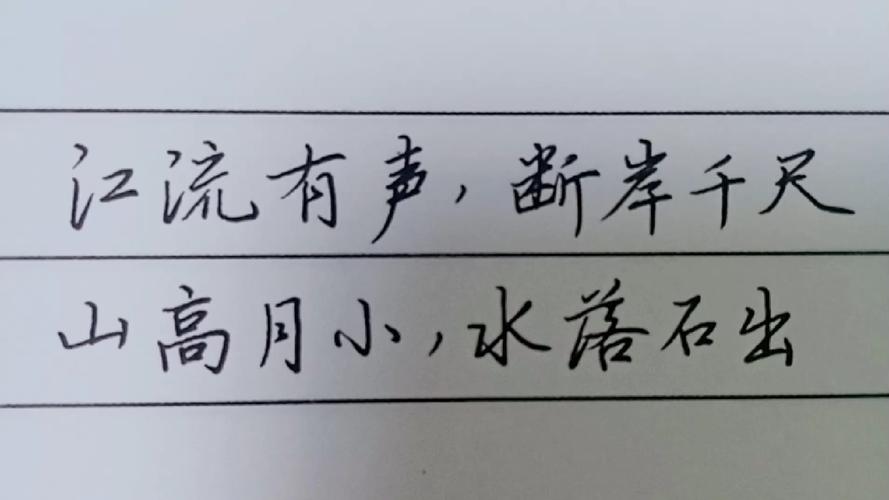 江流有声，断岸千尺
山高月小，水落石出